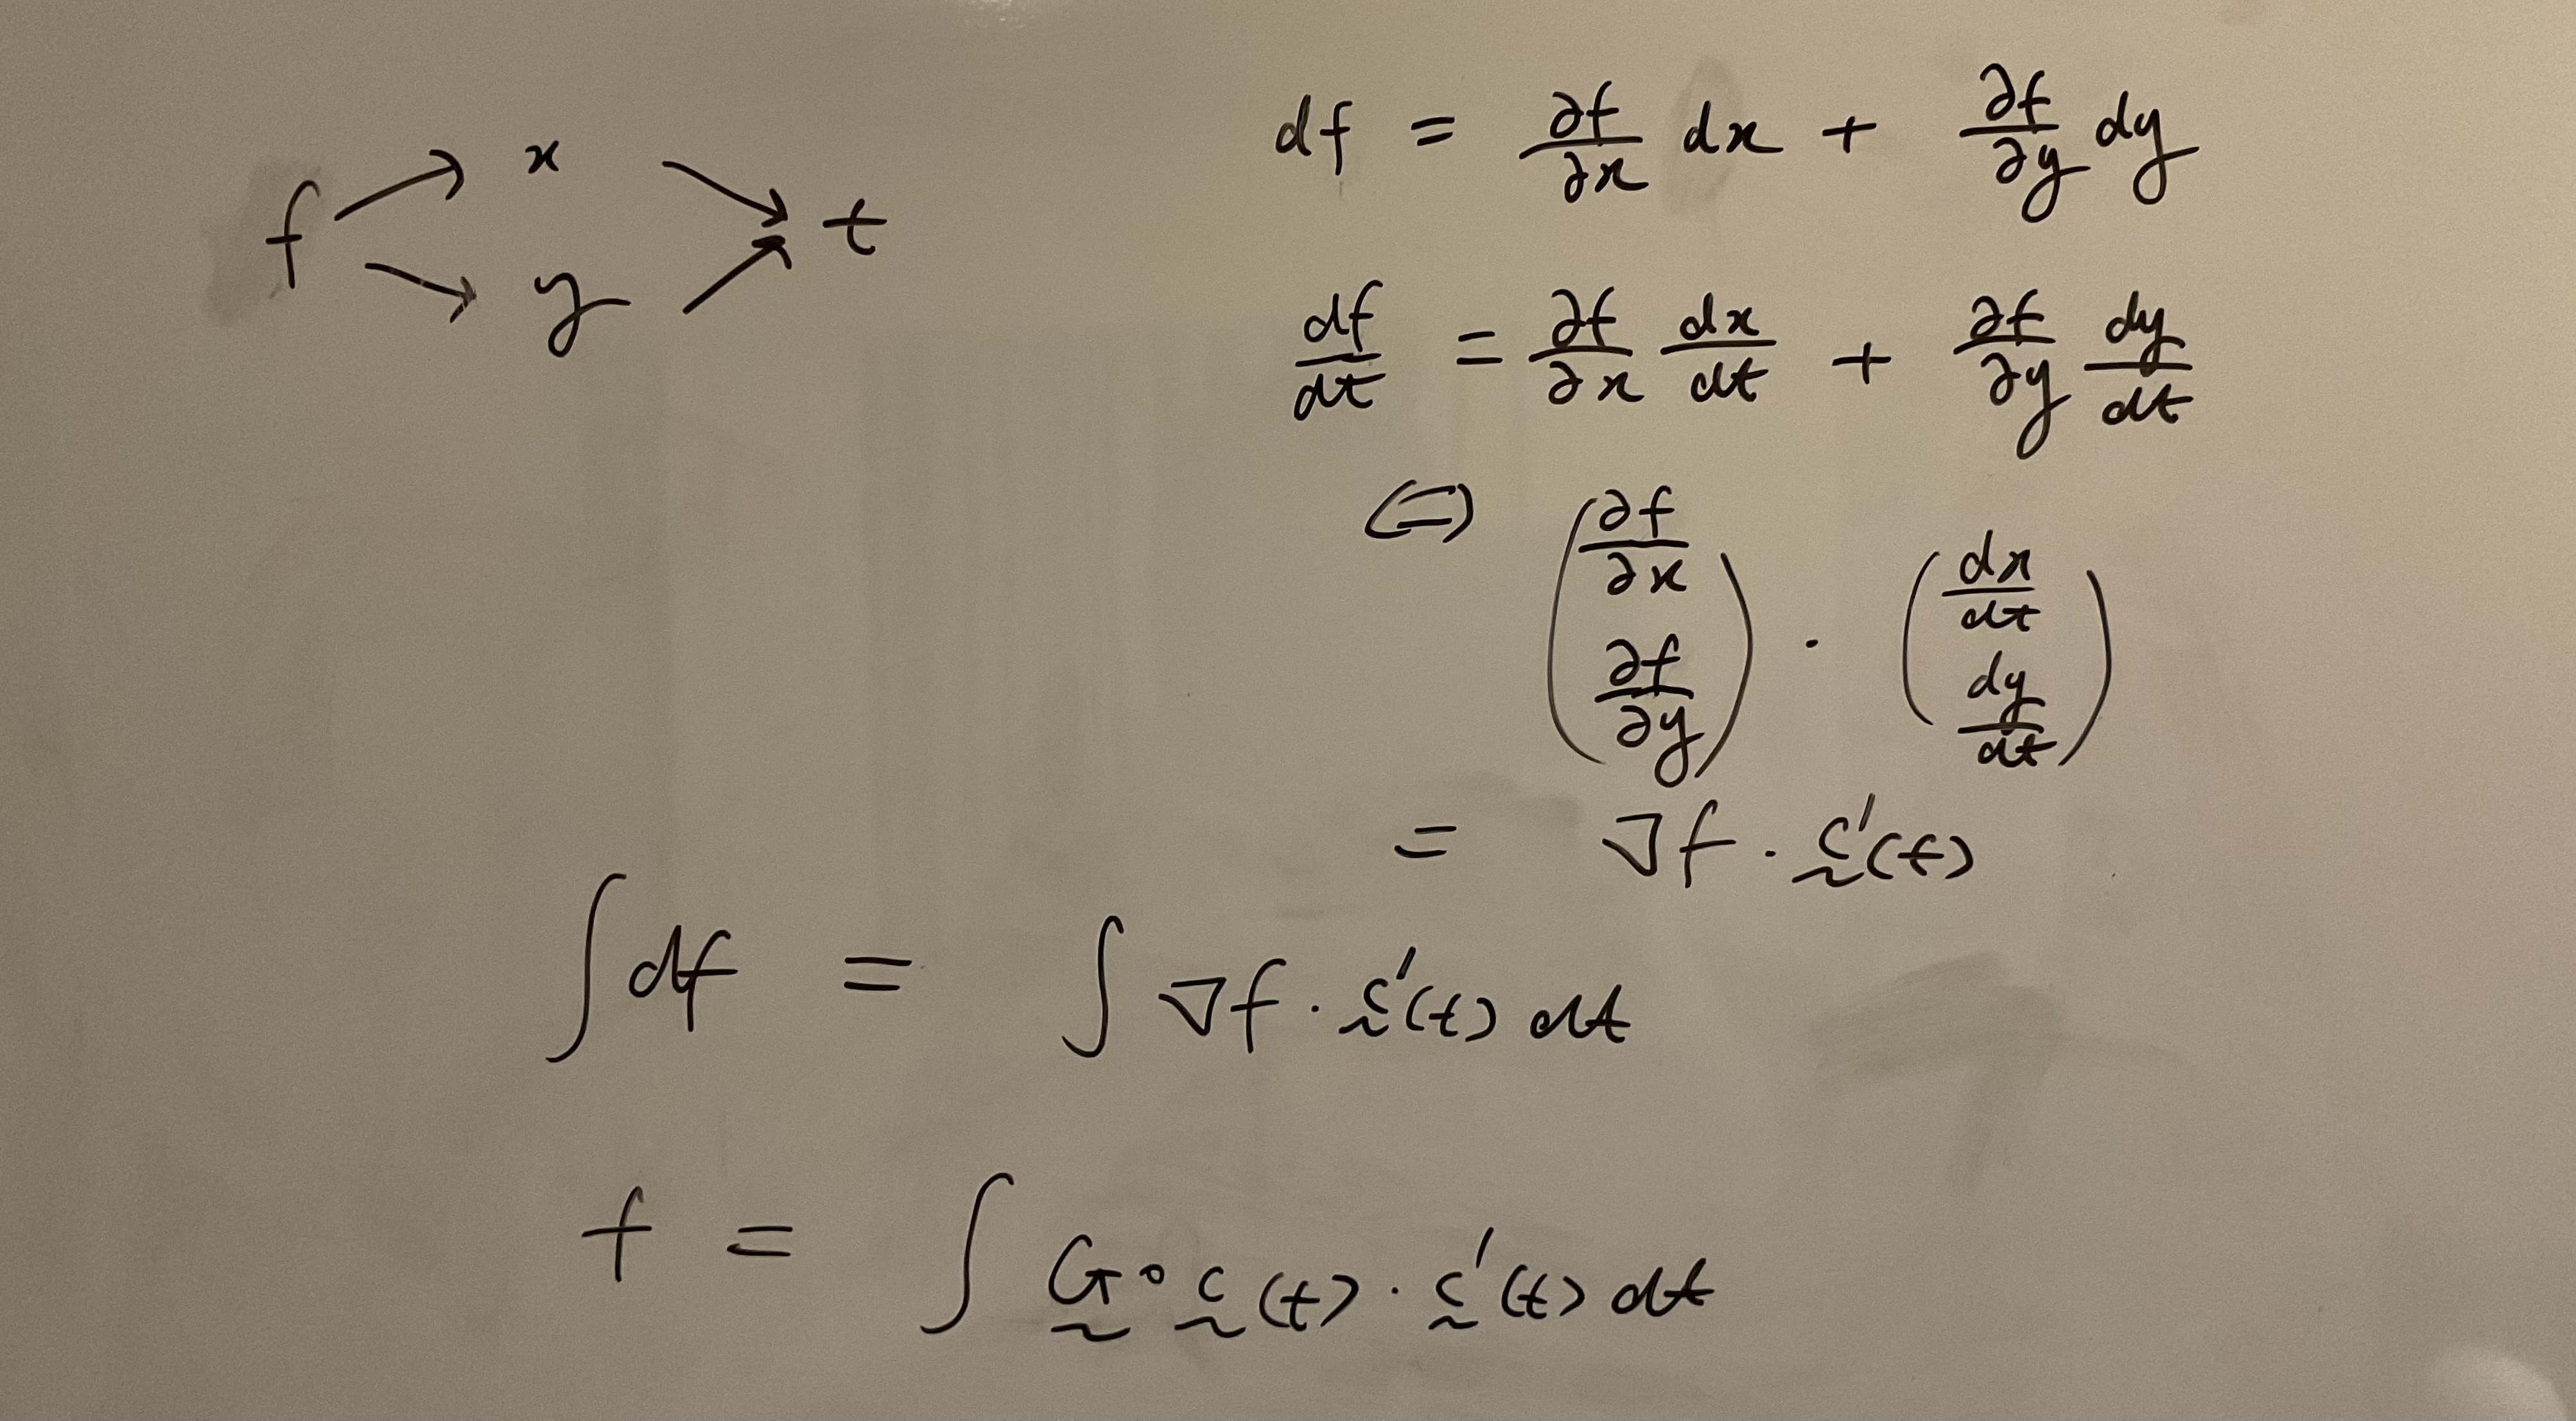 f → x → t
f → y → t
df = ∂f/∂x dx + ∂f/∂y dy
df/dt = ∂f/∂x dx/dt + ∂f/∂y dy/dt
⇔ (∂f/∂x ∂f/∂y) · (dx/dt dy/dt)
= ∇f · c̰′(t)
∫ df = ∫ ∇f · c̰′(t) dt
f = ∫ G̰ ∘ c̰(t) · c̰′(t) dt